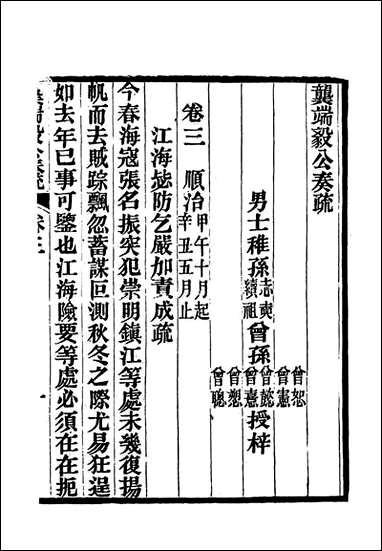 龔端毅公奏疏
男士稚孫志奭續祖曾孫曾恕曾憲曾懿曾憙曾愬曾聰授梓
卷三　順治甲午十月起辛丑五月止
江海毖防乞嚴加責成疏
今春海寇張名振突犯崇明鎮江等處未幾復揚
帆而去賊踪飄忽蓄謀叵測秋冬之際尤易狂逞
如去年已事可鑒也江海險要等處必須在在扼
卷三
一